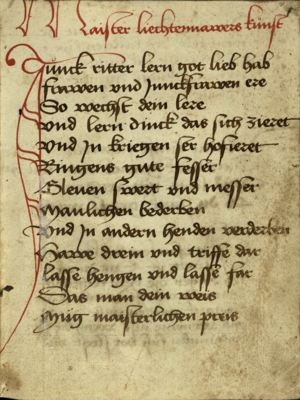 Maister liechtennawers kunst
Junck ritter lern got lieb hab
frawen und Junckfrawen ere
So wechst dein lere
und lern dinck das sich zieret
und In kriegen ser hofieret
Ringens gute fesser
Gleuen swert und messer
Manlichen bederben
und In andern henden verderben
Hawe drein und triffe dar
lasse hengen und lasse far
Das man dein weis
Mug maisterlichen preis